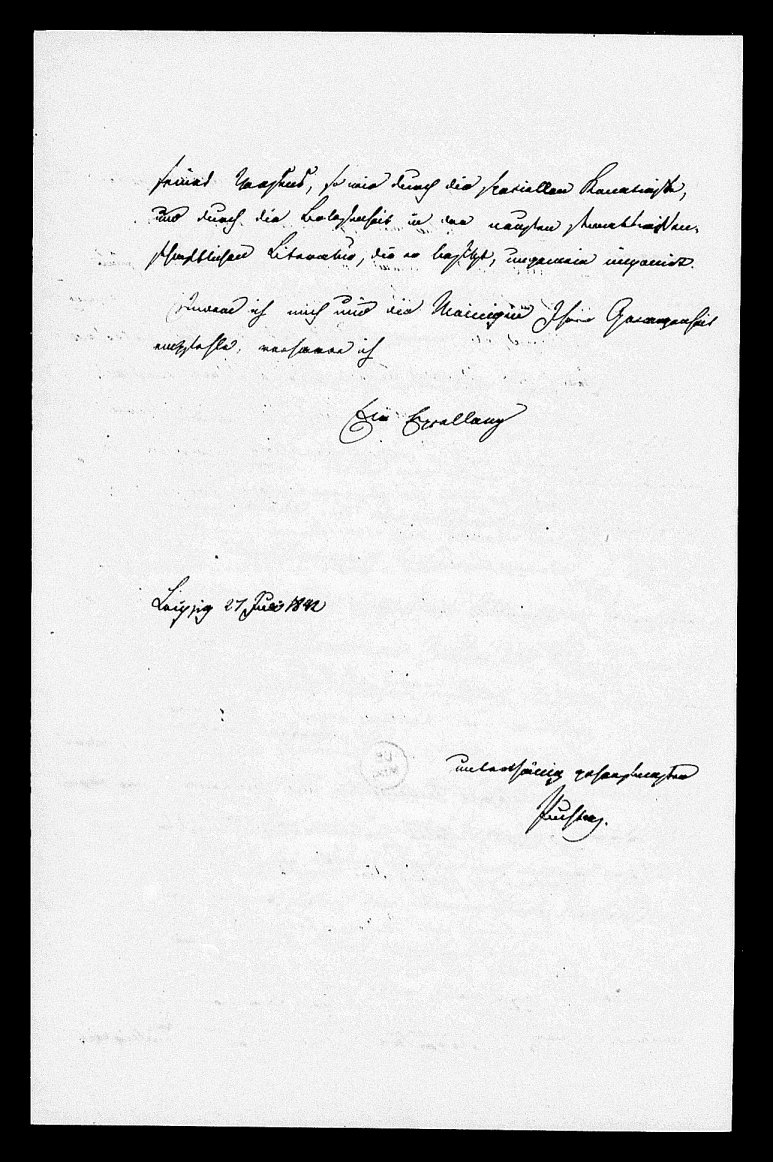 seines Wesens, so wie durch die speciellen Kenntnisse,
und durch die Belesenheit in der neuesten staatswissen-
schaftlichen Literatur, die er besitzt, ungemein imponirt.
Indem ich mich und die Meinigen Ihrer Gewogenheit
empfehle, verharre ich
Excellenz
Leipzig 27 Juli 1842
unterthänig gehorsamster